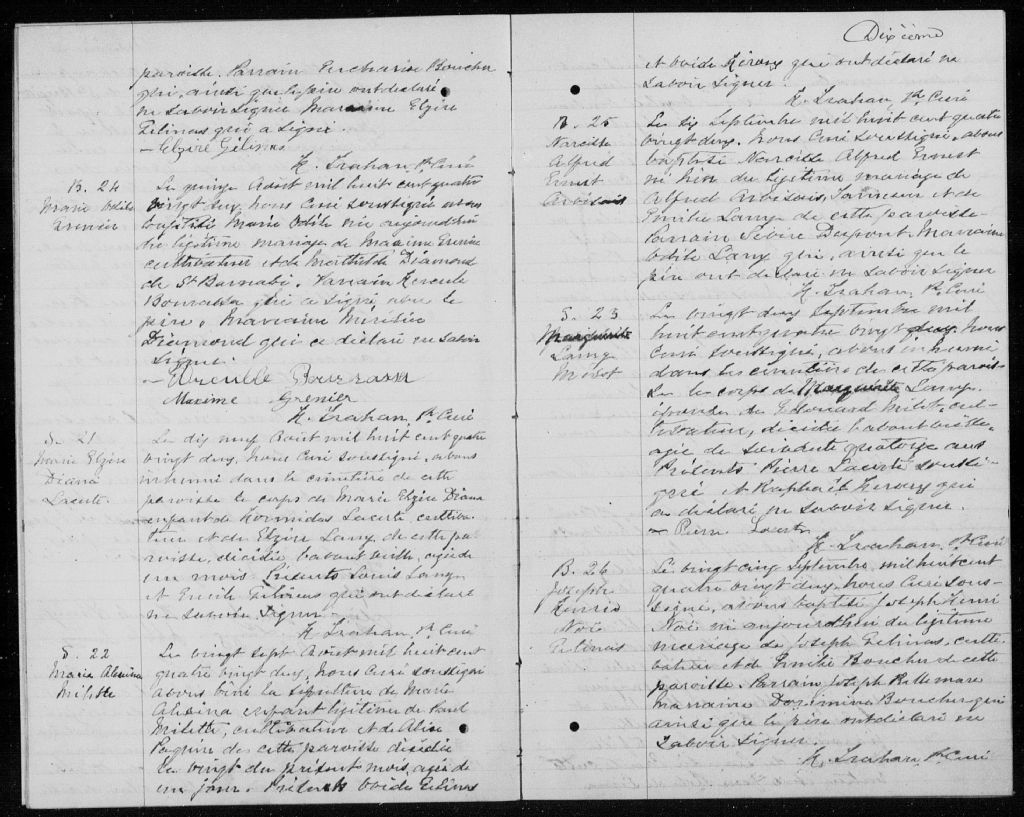 paroisse. Parrain Eucharise Boucher
qui, ainsi que le père ont déclaré
ne savoir signer Marraine Elzire
Gelinas qui a signé.
- Elzire Gélinas
H. Trahan, Ptr Curé
B. 24
Marie Odile
Grenier
Le quinze Août mil huit cent quatre
vingt deux, nous Curé soussigné avons
baptisé Marie Odile née aujourd'hui
du légitime mariage de Maxime Grenier
cultivateur et de Mathilde Diamond
de St Barnabé. Parrain Hercule
Bourassa qui a signé avec le
père. Marraine
Diamond qui a déclaré ne savoir
signer.
- Hercule Bourrassa
Maxime Grenier
H. Trahan, Ptr Curé
S. 21
Marie Elzire
Diana
Lacerte
Le dix neuf Août mil huit cent quatre
vingt deux, nous Curé soussigné, avons
inhumé dans le cimetière de cette
paroisse le corps de Marie Elzire Diana
enfant de Hormidas Lacerte cultiva-
teur et de Elzire Lamy de cette pa-
roisse, décédée l'avant veille, agée de
un mois. Présents Louis Lamy
et Gelinas qui ont déclaré
ne savoir signer.
H. Trahan, Ptr Curé
S. 22
Maria Alexina
Milette
Le vingt sept Août mil huit cent
quatre vingt deux, nous Curé soussigné
avons béni la sépulture de Marie
Alexina enfant légitime de Paul
Milette, cultivateur et de Alise
Paquin de cette paroisse décédée
le vingt du présent mois, agée de
un jour. Présents Ovide Gelinas
Dixième
et Ovide Héroux qui ont déclaré ne
savoir signer.
H. Trahan, Ptr Curé
B. 25
Narcisse
Alfred
Ernest
Le six Septembre mil huit cent quatre
vingt deux, nous Curé soussigné, avons
baptisé Narcisse Alfred Ernest
né hier du légitime mariage de
Alfred et de
Emilie Lamy de cette paroisse.
Parrain Marraine
Odile Lamy qui, ainsi que le
père ont déclaré ne savoir signer
H. Trahan, Ptr Curé
S. 23
Marguerite
Lamy
Milot
Le vingt deux Septembre mil
huit cent quatre vingt deux, nous
Curé soussigné, avons inhumé
dans le cimetière de cette parois-
se le corps de Marguerite Lamy
épouse de Edouard Milot, cul-
tivateur, décédée l'avant veille,
agée de soixante quatorze ans
Présents Pierre Lacerte soussi-
gné et Raphaël Héroux qui
a déclaré ne savoir signer.
- Pierre Lacerte
H. Trahan, Ptr Curé
B. 26
Joseph
Henri
Noë
Gelinas
Le vingt cinq Septembre mil huit cent
quatre vingt deux, nous Curé sous-
signé, avons baptisé Joseph Henri
Noë né aujourd'hui du légitime
mariage de Joseph Gelinas, culti-
vateur et de Emilie Boucher de cette
paroisse. Parrain Joseph Bellemare
Marraine Boucher qui
ainsi que le père ont déclaré ne
savoir signer.
H. Trahan, Ptr Curé